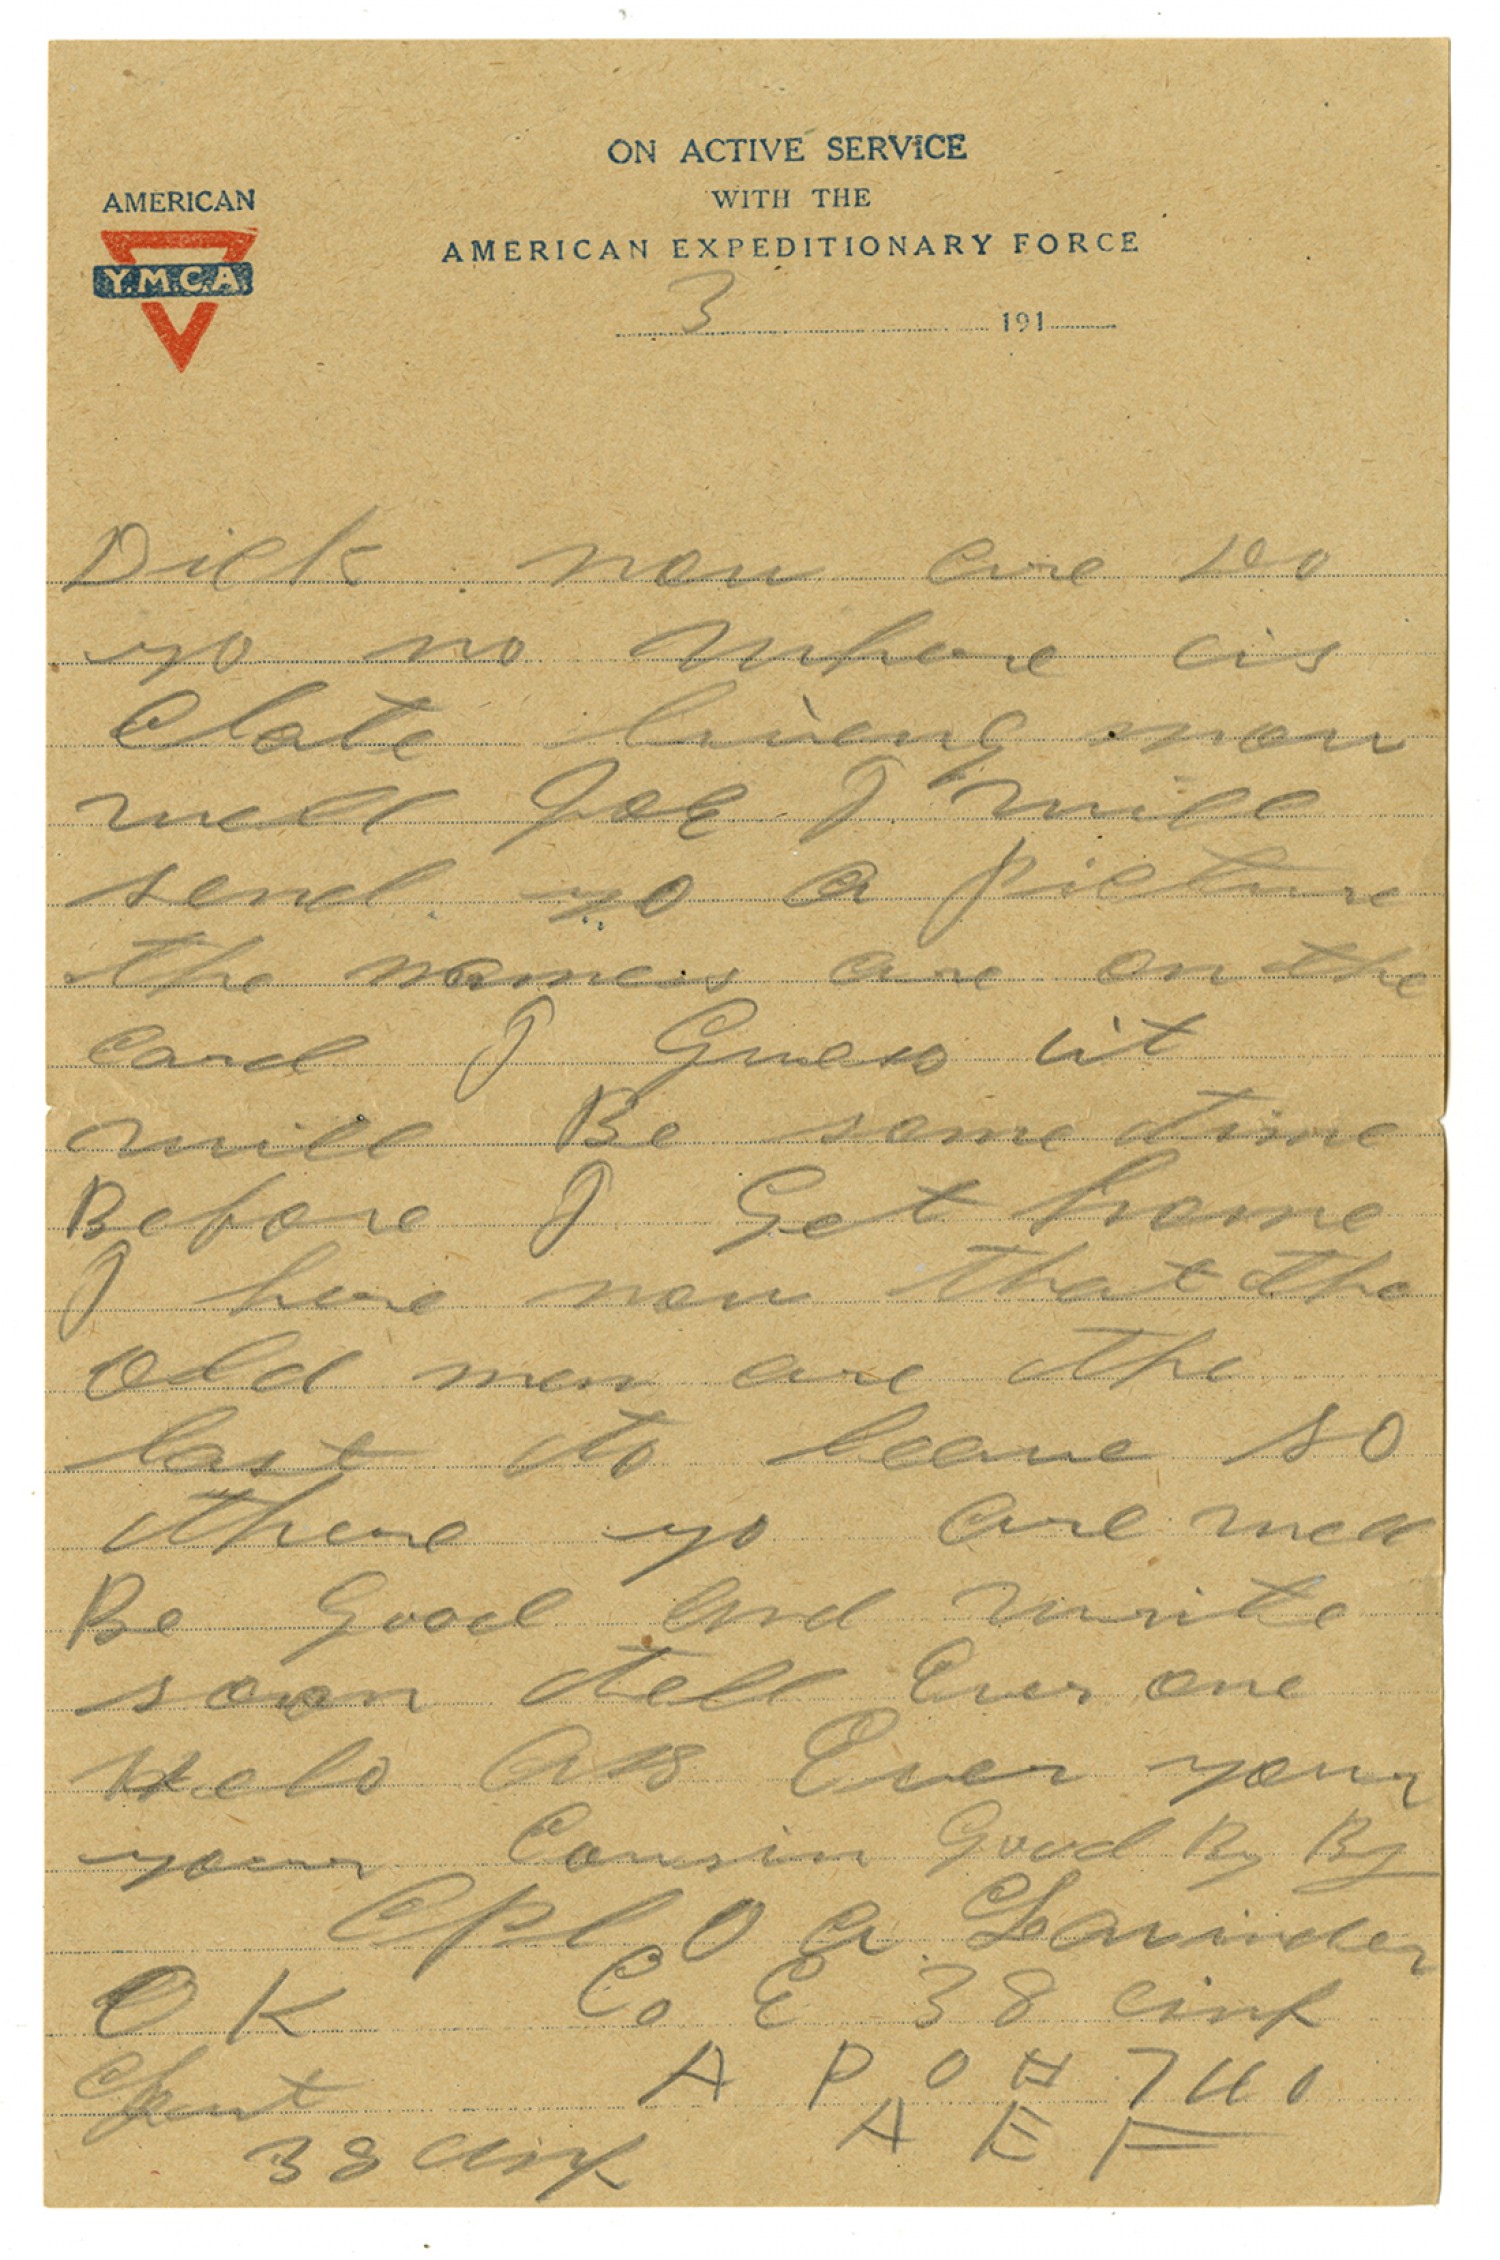 ON ACTIVE SERVICE
WITH THE
AMERICAN
AMERICAN EXPEDITIONARY FORCE
Y.M.C.A.
3 191
Dick now are Do
yo no Whare is
Clate living now
well Joe I will
send yo a picture
the names are on the
card I Guess it
will Be some time
Before I Get home
I here now that the
old men are the
last to leave so
there yo are well
Be Good and write
soon tell Ever one
Helo As Ever your
your Cousin Good By By
Cpl O A Lavinder
OK Co E 38 inf
A P O # 740
38 inf A E F